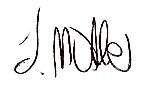 J. Muller